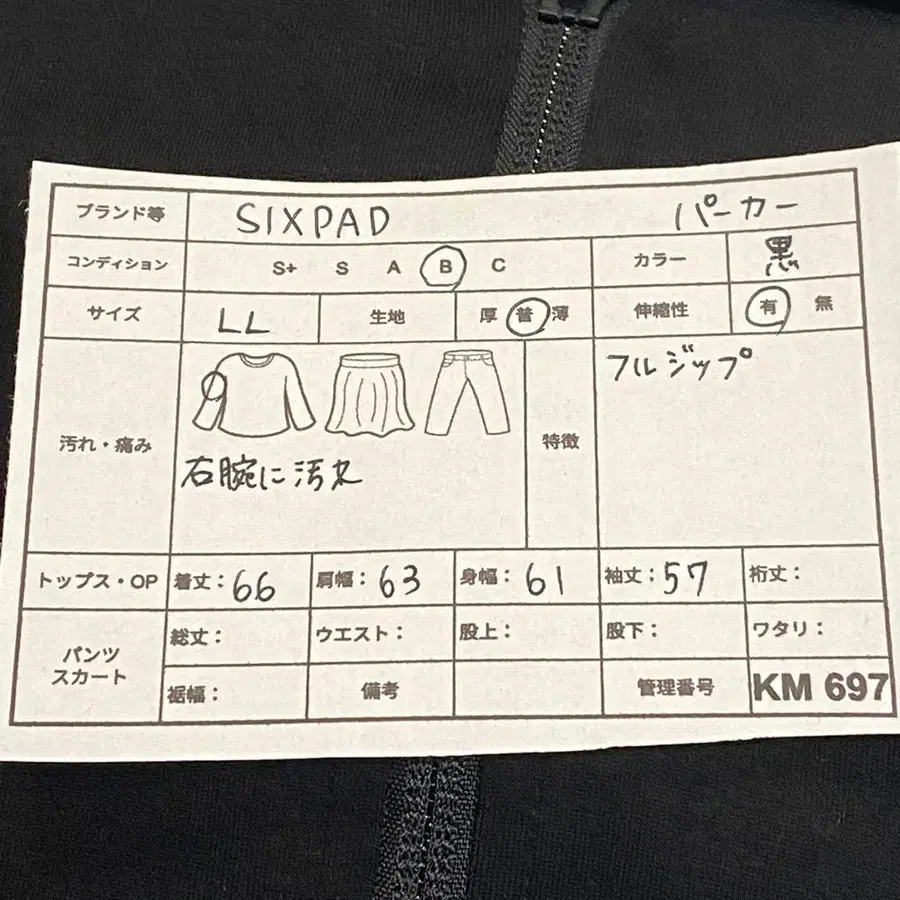 ブランド等 SIXPAD パーカー
コンディション S+ S A B C カラー 黒
サイズ LL 生地 厚 普 薄 伸縮性 有 無
汚れ・痛み 右腕に汚れ 特徴 フルジップ
トップス・OP 着丈：66 肩幅：63 身幅：61 袖丈：57 裄丈：
パンツ スカート 総丈： ウエスト： 股上： 股下： ワタリ：
裾幅： 備考 管理番号 KM 697